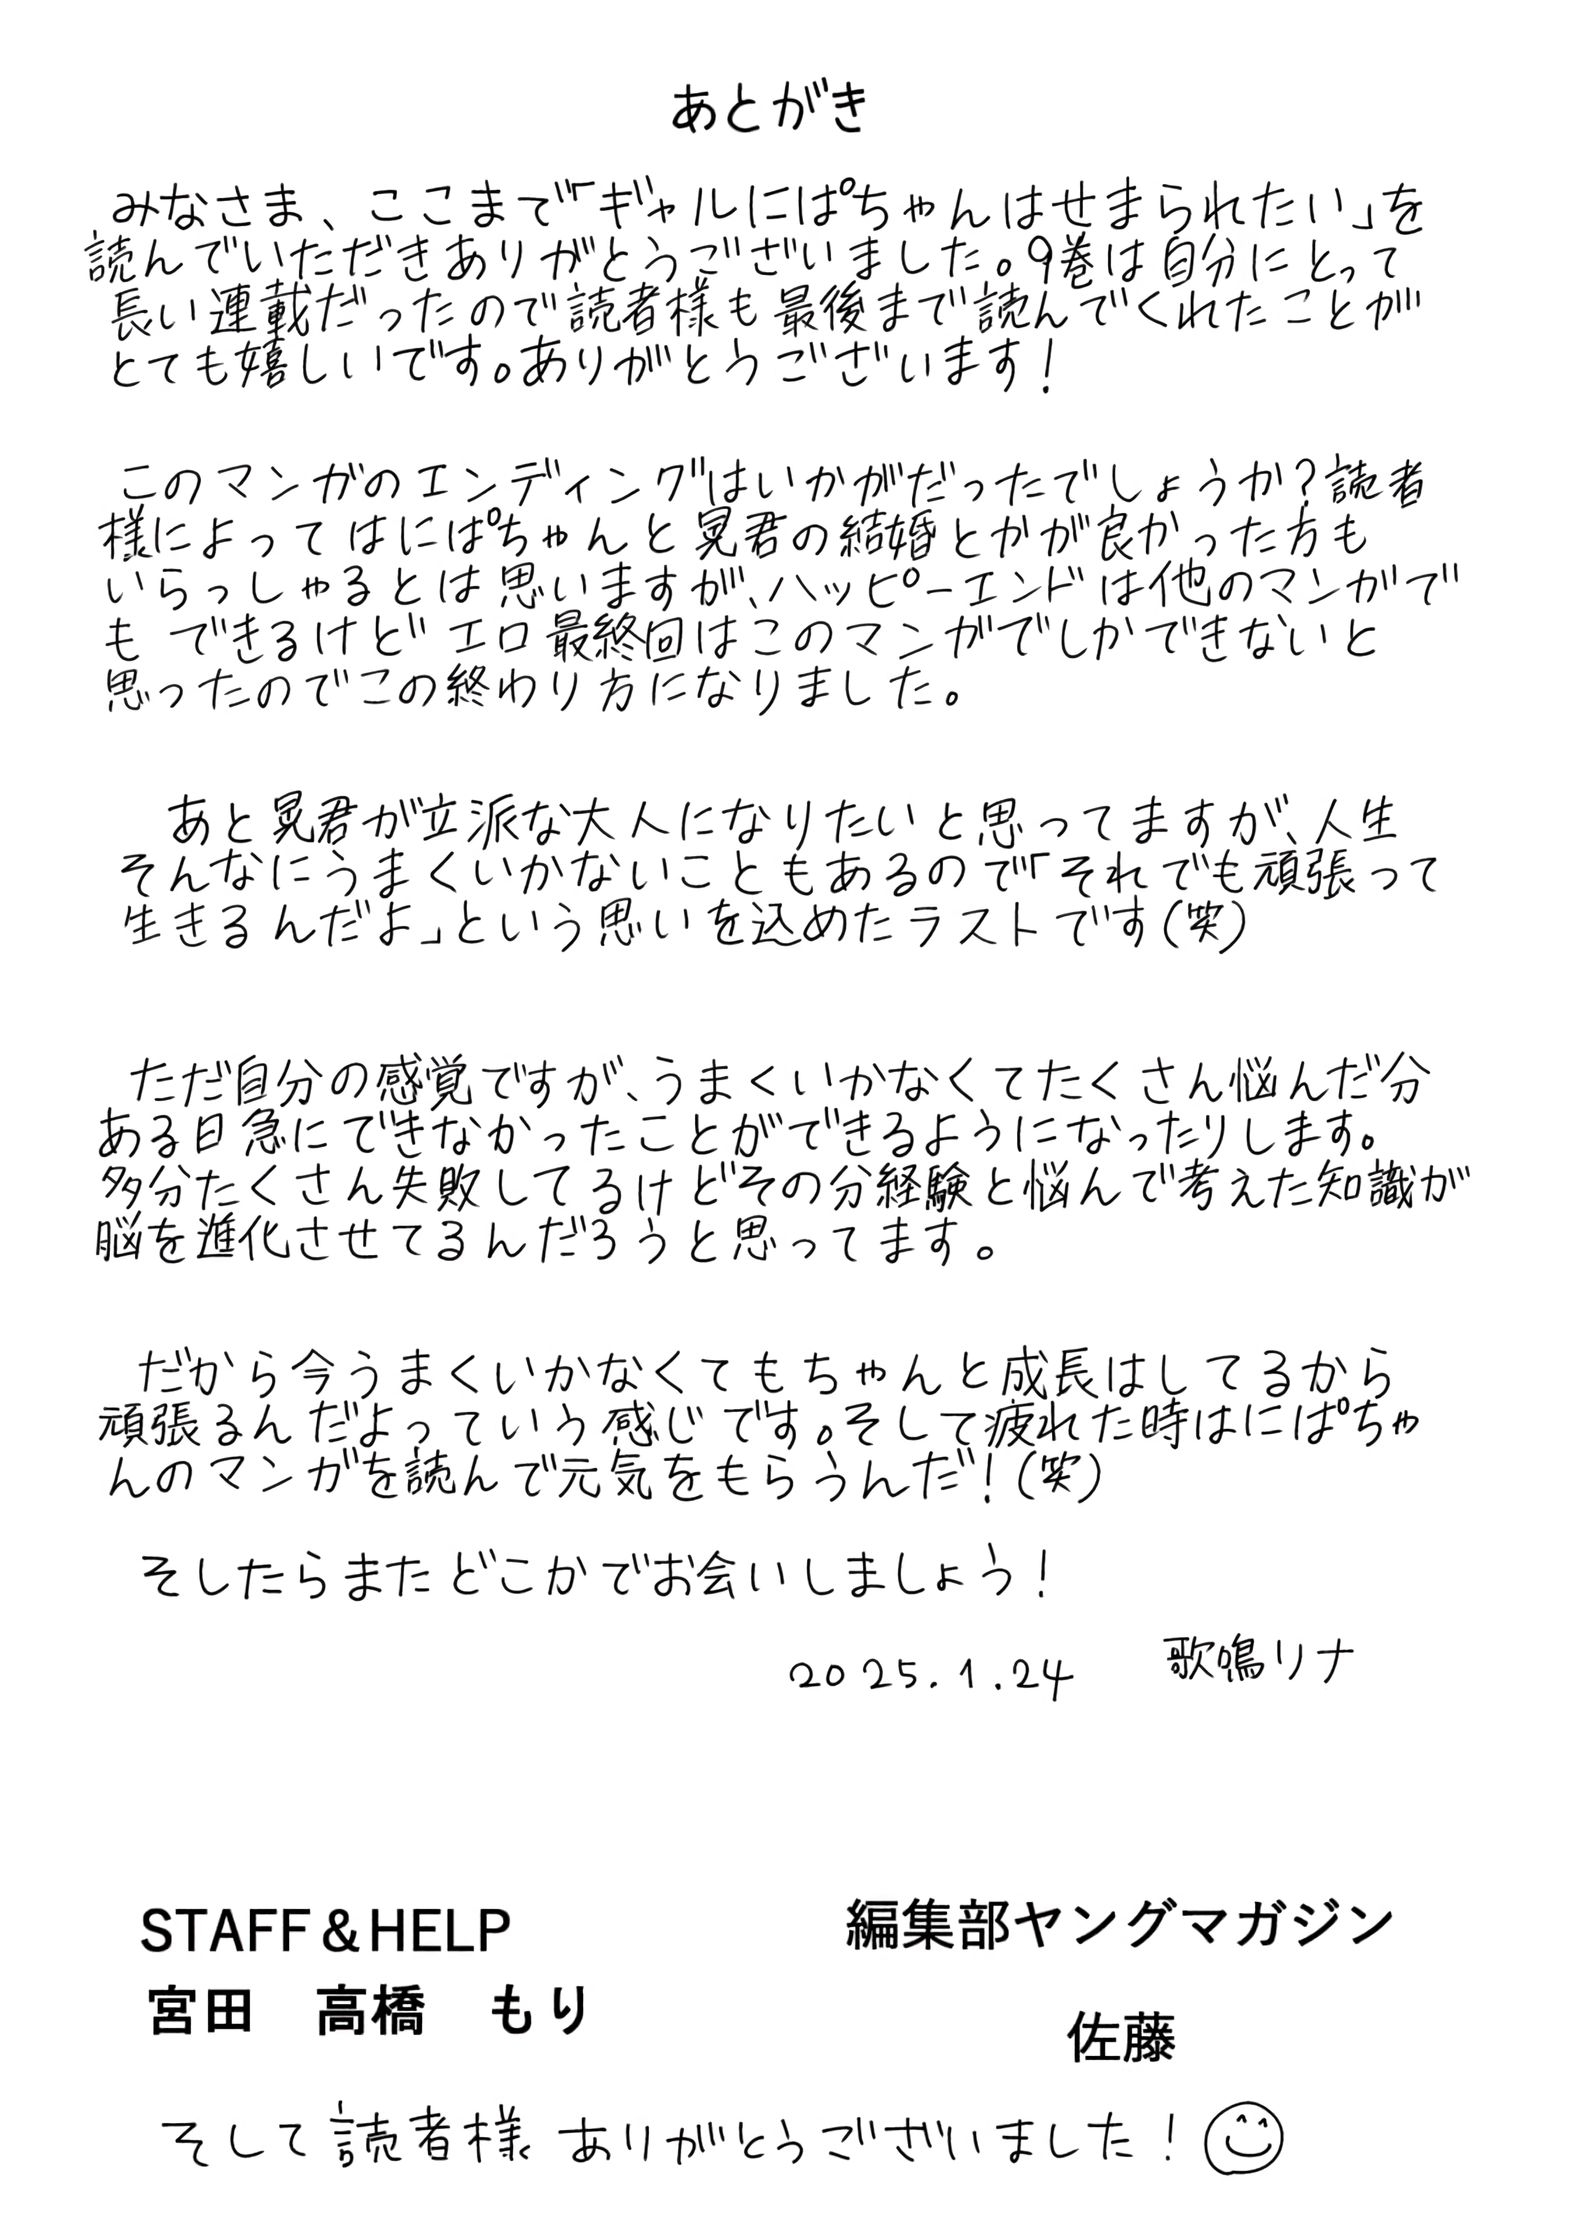 あとがき
みなさま、ここまで「ギャルにぱちゃんはせまられたい」を
読んでいただきありがとうございました。9巻は自分にとって
長い連載だったので読者様も最後まで読んでくれたことが
とても嬉しいです。ありがとうございます!
このマンガのエンディングはいかがだったでしょうか?読者
様によってはにぱちゃんと晃君の結婚とかが良かった方も
いらっしゃるとは思いますが、ハッピーエンドは他のマンガで
も できるけど エロ最終回はこのマンガでしかできないと
思ったのでこの終わり方になりました。
あと晃君が立派な大人になりたいと思ってますが、人生
そんなにうまくいかないこともあるので「それでも頑張って
生きるんだよ」という思いを込めたラストです(笑)
ただ自分の感覚ですが、うまくいかなくてたくさん悩んだ分
ある日急にできなかったことができるようになったりします。
多分たくさん失敗してるけどその分経験と悩んで考えた知識が
脳を進化させてるんだろうと思ってます。
だから今うまくいかなくてもちゃんと成長はしてるから
頑張るんだよっていう感じです。そして疲れた時はにぱちゃ
んのマンガを読んで元気をもらうんだ!(笑)
そしたらまたどこかでお会いしましょう!
2025.1.24 歌鳴リナ
STAFF&HELP
宮田 高橋 もり
編集部ヤングマガジン
佐藤
そして読者様 ありがとうございました!